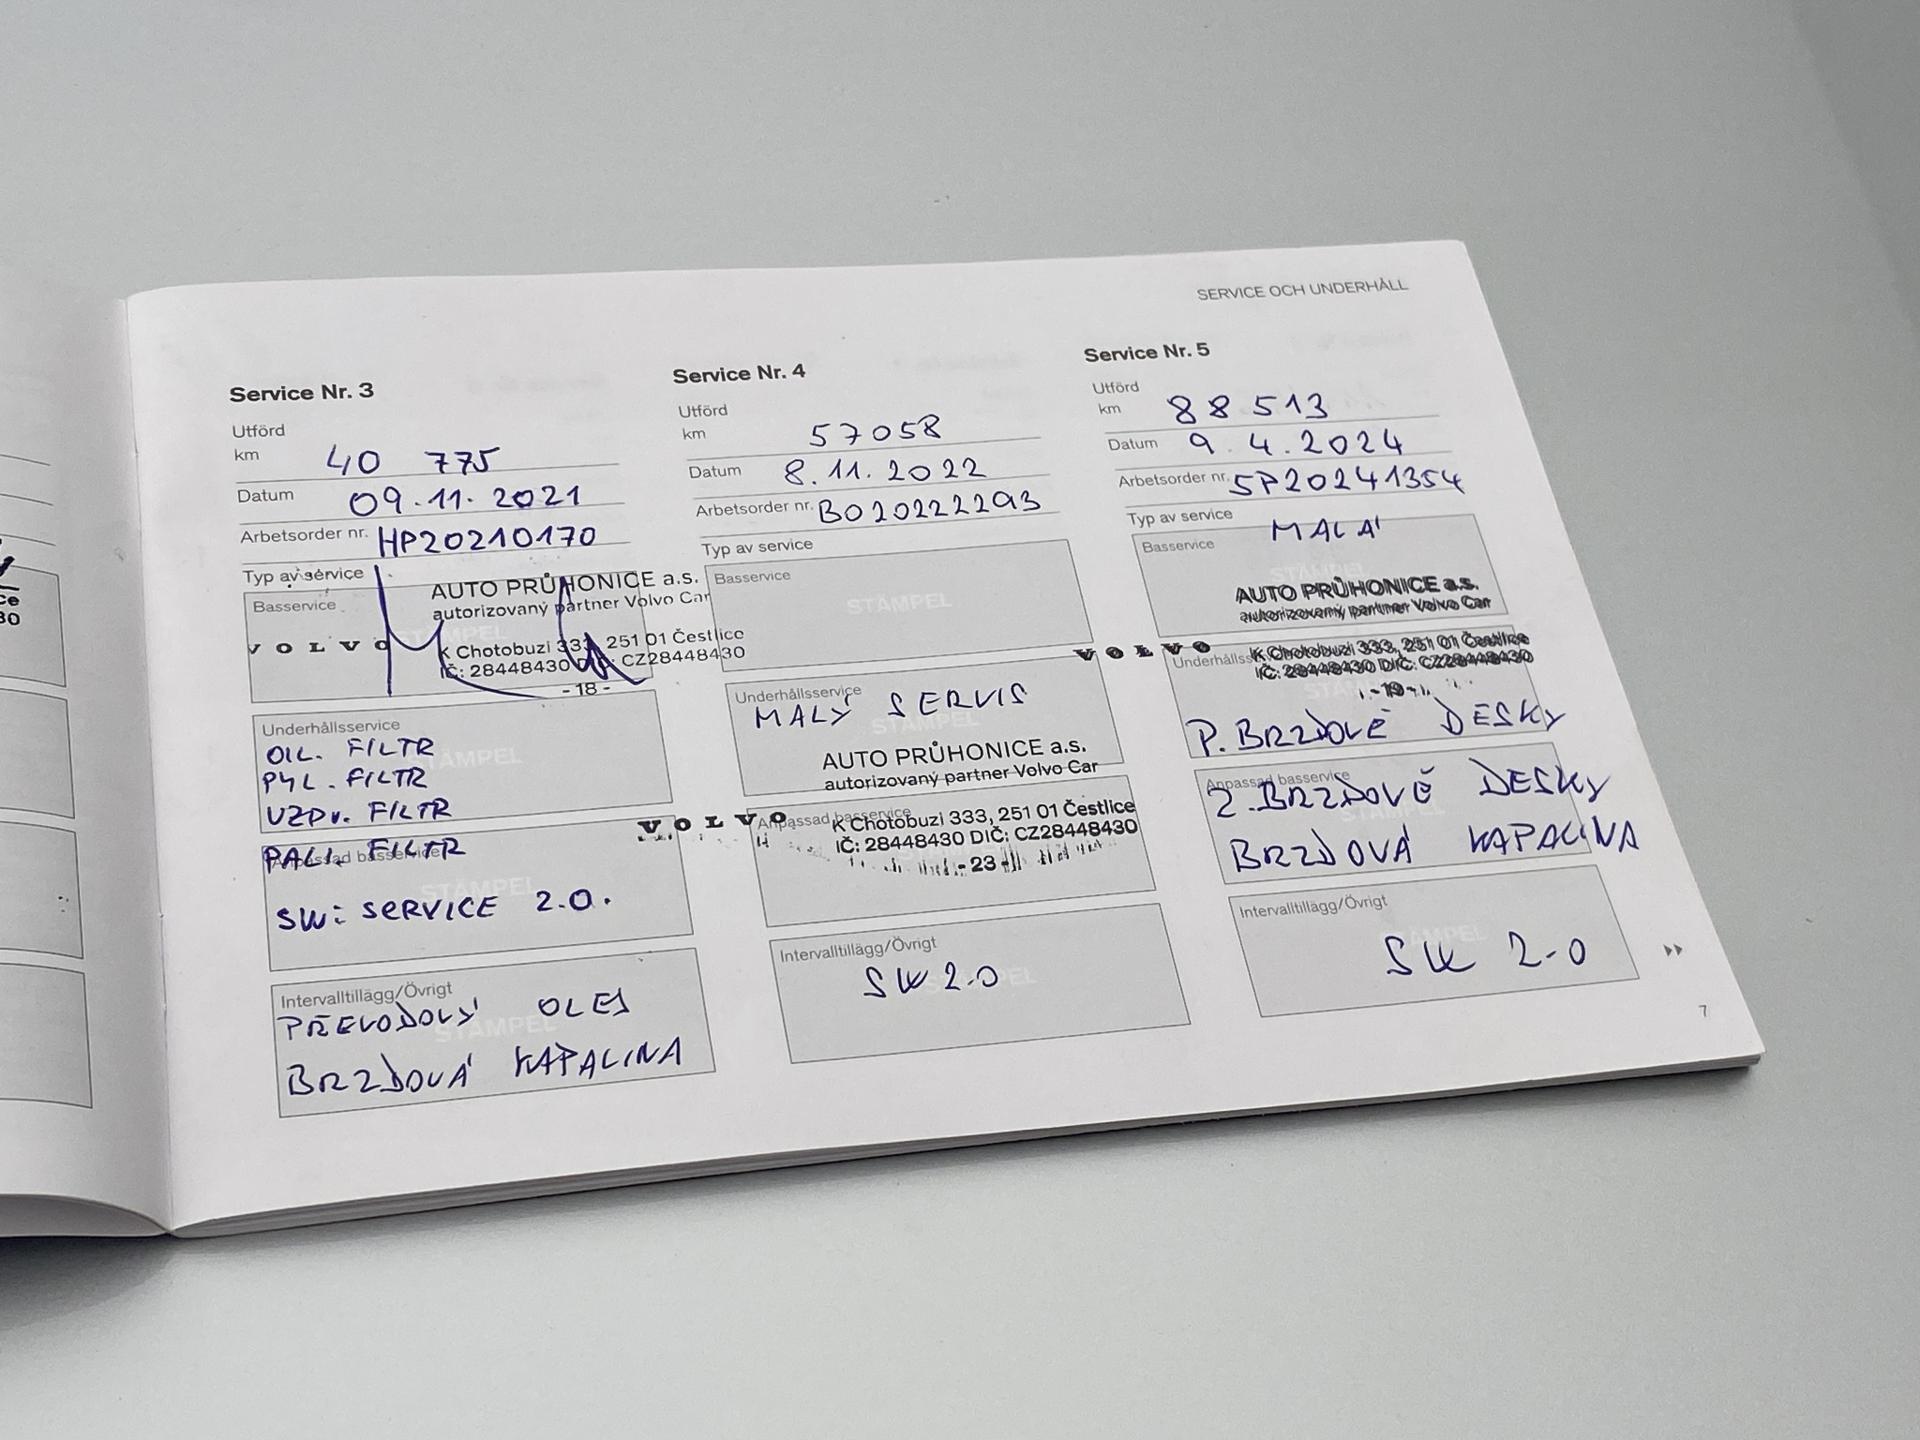 SERVICE OCH UNDERHÅLL
Service Nr. 3
Utförd
km 40 775
Datum 09.11.2021
Arbetsorder nr. HP20210170
Typ av service
Basservice
AUTO PRŮHONICE a.s.
autorizovaný partner Volvo Car
VOLVO
K Chotobuzi 333, 251 01 Čestlice
IČ: 28448430 DIČ: CZ28448430
- 18 -
Underhållsservice
OIL. FILTR
PYL. FILTR
VZDU. FILTR
PALI. FILTR
Anpassad basservice
SW: SERVICE 2.0.
Intervalltillägg/Övrigt
PŘEVODOVÝ OLEJ
BRZDOVÁ KAPALINA
Service Nr. 4
Utförd
km 57058
Datum 8.11.2022
Arbetsorder nr. BO20222293
Typ av service
Basservice
STÄMPEL
Underhållsservice
MALÝ SERVIS
STÄMPEL
AUTO PRŮHONICE a.s.
autorizovaný partner Volvo Car
VOLVO
Anpassad basservice
K Chotobuzi 333, 251 01 Čestlice
IČ: 28448430 DIČ: CZ28448430
- 23 -
Intervalltillägg/Övrigt
SW 2.0
Service Nr. 5
Utförd
km 88513
Datum 9.4.2024
Arbetsorder nr. SP20241354
Typ av service
MALÁ
Basservice
STÄMPEL
AUTO PRŮHONICE a.s.
autorizovaný partner Volvo Car
VOLVO
K Chotobuzi 333, 251 01 Čestlice
IČ: 28448430 DIČ: CZ28448430
- 19 -
P. BRZDOVÉ DESKY
Anpassad basservice
Z. BRZDOVÉ DESKY
BRZDOVÁ KAPALINA
Intervalltillägg/Övrigt
SW 2.0
7